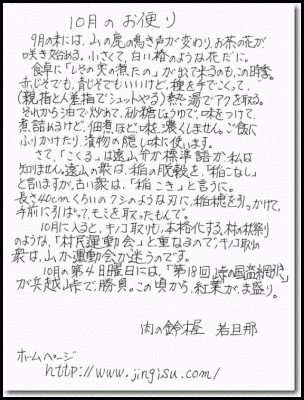 10月のお便り
9月の末には、山の鹿の鳴き声が変わり、お茶の花が
咲き始める。小さくて、白い椿のような花だに。
食卓に「しその実の煮たの」が出て来るのも、この時季。
赤じそでも、青じそでもいいけど、穂を手でこくって、
(親指と人差指でシュットやる)熱い湯でアクを取る。
それから油で炒めて、砂糖じょうゆで味をつけて、
煮詰めるけど、佃煮ほど味を濃くしません。ご飯に
ふりかけたり、漬物の隠し味に使います。
さて、「こくる」は遠山弁か標準語か私は
知りません。遠山の衆は、稲の脱穀を、「稲こなし」
と言いますが、古い衆は、「稲こき」と言うに。
長さ40cmくらいのクシのような刃に、稲穂を引っかけて、
手前に引ぱって、モミを取ったもんで。
10月に入ると、キノコ取りも、本格化する。村の秋祭り
のような、「村民運動会」と重なるので、キノコ取りの
衆は、山か運動会か迷うのです。
10月の第4日曜日には、「第18回 峠の国盗り綱引き」
が兵越峠で、勝負。この頃から、紅葉がま盛り。
肉の鈴木屋 若旦那
ホームページ
http://www.jingisu.com/